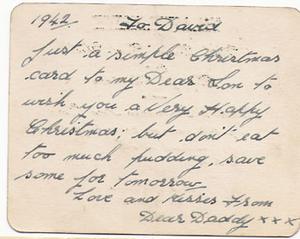 1942 To David
Just a simple Christmas
card to my Dear Son to
wish you a Very Happy
Christmas; but don't eat
too much pudding, save
some for tomorrow
Love and kisses From
Dear Daddy xxx